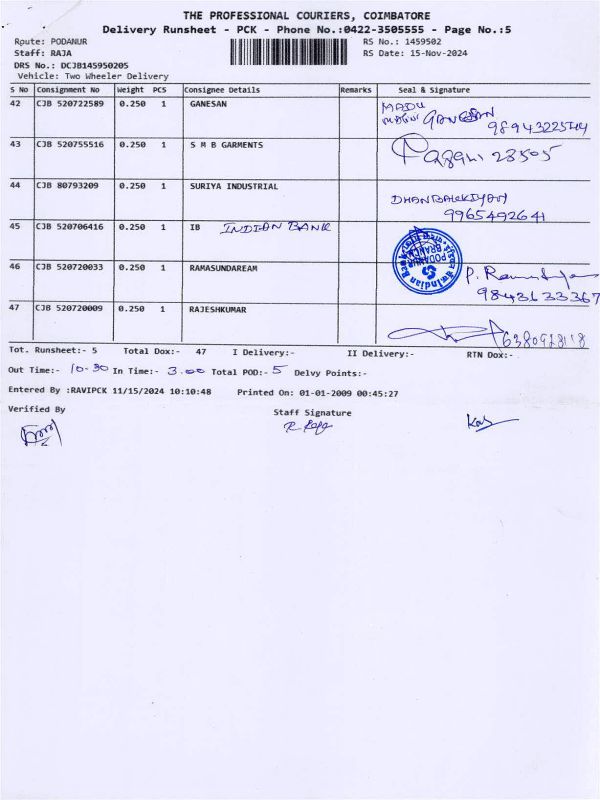 THE PROFESSIONAL COURIERS, COIMBATORE
Delivery Runsheet - PCK - Phone No.:0422-3505555 - Page No.:5
Route: PODANUR RS No.: 1459502
Staff: RAJA RS Date: 15-Nov-2024
DRS No.: DCJB145950205
Vehicle: Two Wheeler Delivery
S No Consignment No Weight PCS Consignee Details Remarks Seal & Signature
42 CJB 520722589 0.250 1 GANESAN
43 CJB 520755516 0.250 1 S M B GARMENTS 23505
44 CJB 80793209 0.250 1 SURIYA INDUSTRIAL
9965492641
45 CJB 520706416 0.250 1 IB INDIAN BANK
PODANUR
BRANCH
46 CJB 520720033 0.250 1 RAMASUNDAREAM P.
9843133367
47 CJB 520720009 0.250 1 RAJESHKUMAR
Tot. Runsheet:- 5 Total Dox:- 47 I Delivery:- II Delivery:- RTN Dox:-
Out Time:- 10-30 In Time:- 3.00 Total POD:- 5 Delvy Points:-
Entered By :RAVIPCK 11/15/2024 10:10:48 Printed On: 01-01-2009 00:45:27
Verified By Staff Signature
R. Raja